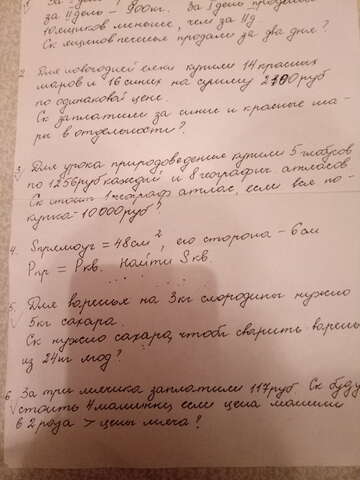 за II день – 900кг. За I день
10 ящиков меньше, чем за II д.
Ск ящиков печенья продали за два дня?
2. Для новогодней елки купили 14 красных
шаров и 16 синих на сумму 2100 руб
по одинаковой цене.
Ск заплатили за синие и красные ша-
ры в отдельности?
3. Для урока природоведения купили 5 глобусов
по 1256 руб каждый и 8 географич. атласов
Ск стоит 1 географ атлас, если вся по-
купка – 10000 руб?
4. Sпрямоуг = 48 см², его сторона – 6 см
Pпр = Pкв. Найти Sкв.
5. Для варенья из 3 кг смородины нужно
5 кг сахара.
Ск нужно сахара, чтобы сварить варенье
из 24 кг ягод?
6. За три мячика заплатили 117 руб Ск буду
стоить 4 машинки, если цена машины
в 2 раза > цены мяча?